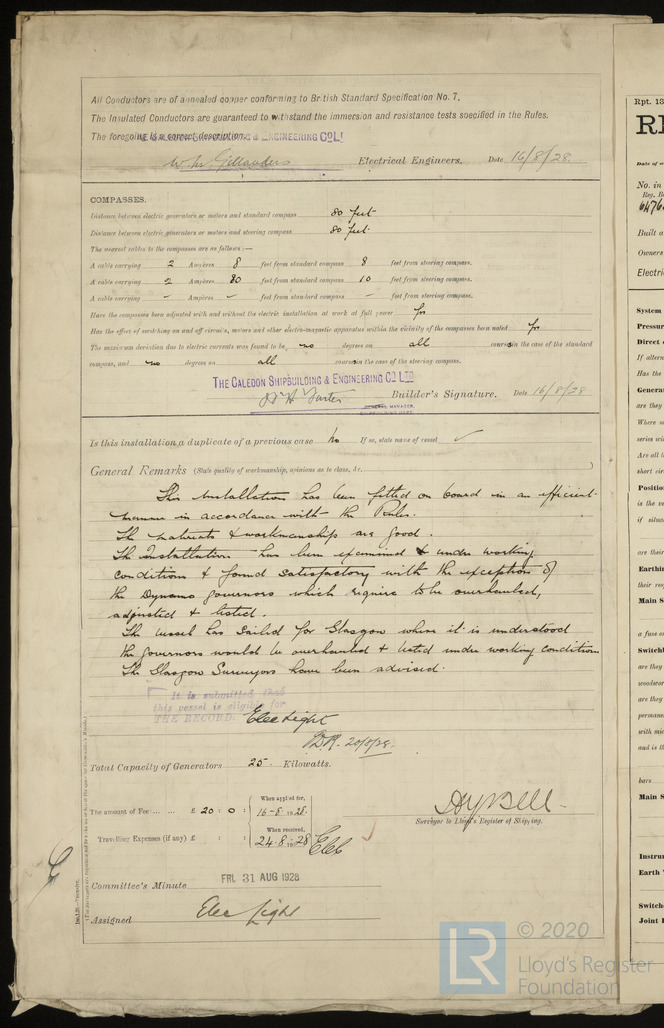 All Conductors are of annealed copper conforming to British Standard Specification No. 7.
The Insulated Conductors are guaranteed to withstand the immersion and resistance tests specified in the Rules.
The foregoing is a correct description.
THE CALEDON SHIPBUILDING & ENGINEERING CO LTD
Electrical Engineers. Date 16/8/28.
COMPASSES.
Distance between electric generators or motors and standard compass 80 feet
Distance between electric generators or motors and steering compass 80 feet.
The nearest cables to the compasses are as follows:—
A cable carrying 2 Ampères 8 feet from standard compass 8 feet from steering compass.
A cable carrying 2 Ampères 80 feet from standard compass 10 feet from steering compass.
A cable carrying – Ampères – feet from standard compass – feet from steering compass.
Have the compasses been adjusted with and without the electric installation at work at full power
Has the effect of switching on and off circuits, motors and other electro-magnetic apparatus within the vicinity of the compasses been noted
The maximum deviation due to electric currents was found to be no degrees on all courses in the case of the standard
compass, and no degrees on all courses in the case of the steering compass.
THE CALEDON SHIPBUILDING & ENGINEERING CO LTD
Builder's Signature. Date 16/8/28
GENERAL MANAGER.
Is this installation a duplicate of a previous case no If so, state name of vessel ✓
General Remarks (State quality of workmanship, opinions as to class, &c.)
This Installation has been fitted on board in an efficient
manner in accordance with the Rules.
The materials & workmanship are good.
The Installation has been examined & under working
conditions & found satisfactory with the exception of
the Dynamo governors which require to be overhauled,
adjusted & tested.
The vessel has sailed for Glasgow where it is understood
the governors would be overhauled & tested under working condition
The Glasgow Surveyors have been advised.
It is submitted that
this vessel is eligible for
THE RECORD. Elec Light
20/8/28.
Total Capacity of Generators 25 Kilowatts.
The amount of Fee ... ... £ 20 : 0 : When applied for, 16-8-1928.
Travelling Expenses (if any) £ : : When received, 24.8.1928
Surveyor to Lloyd's Register of Shipping.
Committee's Minute FRI. 31 AUG 1928
Assigned Elec Light
© 2020
LR
Lloyd's Register
Foundation
Rpt. 13
Date of
No. in
Reg. B
Built a
Owners
Electri
System
Pressur
Direct
If altern
Has the
Genera
are they
Where
series wi
Are all t
short cir
Position
is the ve
if situa
are their
Earthin
their res
Main S
a fuse o
Switchb
are they
woodwor
are they
permane
with mic
and is th
bars
Main S
Instrum
Earth
Switche
Joint